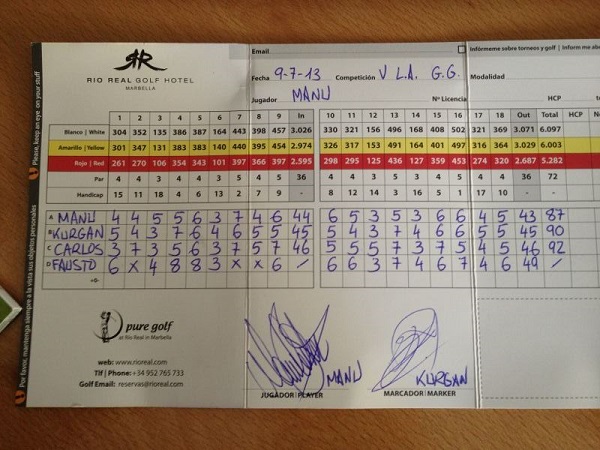 RIO REAL GOLF HOTEL
MARBELLA
Email
Infórmeme sobre torneos y golf | Inform me abo
Fecha 9-7-13 Competición V L.A. G.G. Modalidad
Jugador MANU
Nº Licencia
HCP
1 2 3 4 5 6 7 8 9 In 10 11 12 13 14 15 16 17 18 Out Total HCP Ne
Blanco | White 304 352 135 386 387 164 443 398 457 3.026 330 321 156 496 168 408 502 321 369 3.071 6.097
Amarillo | Yellow 301 347 131 383 383 140 440 395 454 2.974 326 313 153 491 164 401 497 316 364 3.029 6.003
Rojo | Red 261 270 106 354 343 101 397 366 397 2.595 298 295 125 436 127 359 453 274 320 2.687 5.282
Par 4 4 3 4 4 3 5 4 5 36 4 4 3 5 3 4 5 4 4 36 72
Handicap 15 11 18 4 6 13 2 7 9 - 8 12 14 3 5 1 17 10 -
A MANU 4 4 5 5 6 3 7 4 6 44 6 5 3 5 3 6 6 4 5 43 87
B KURGAN 5 4 3 7 6 4 6 5 5 45 5 4 3 7 4 6 6 5 5 45 90
C CARLOS 3 7 3 5 6 3 7 5 7 46 5 5 5 7 3 7 5 4 5 46 92
D FAUSTO 6 X 4 8 8 3 X X 6 / 6 6 3 7 4 6 7 4 6 49 /
pure golf
at Rio Real in Marbella
web: www.rioreal.com
Tlf | Phone: +34 952 765 733
Golf Email: reservas@rioreal.com
MANU
KURGAN
JUGADOR | PLAYER
MARCADOR | MARKER
Please, keep an eye on your stuff
Por favor, mantenga siempre a la vista sus objetos personales